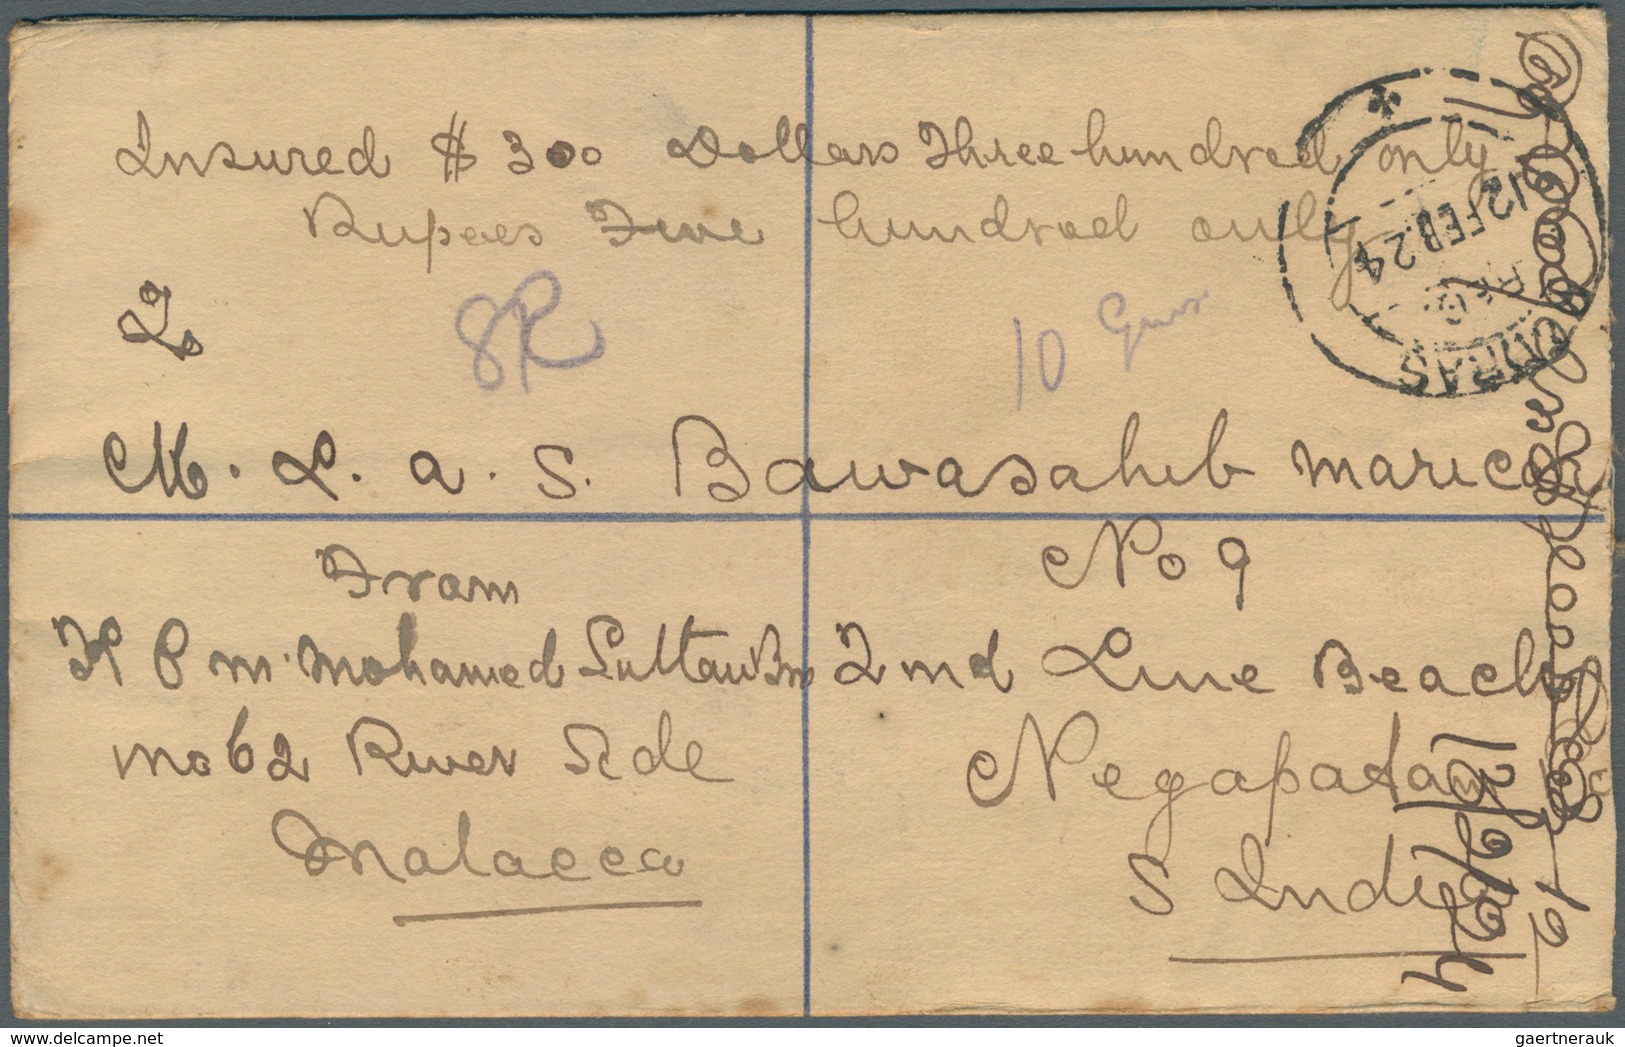 Insured $ 300 Dollars Three hundred only
Rupees Five hundred only
8R
10 Gms
MADRAS
12 FEB.24
M. L. a. S. Bawasahib maricar
From
K P m. mohamed Sultan
No 62 River Side
Malacca
No 9
2nd Line Beach
Negapatam
S India
12/2/24
www.delcampe.net
gaertnerauk